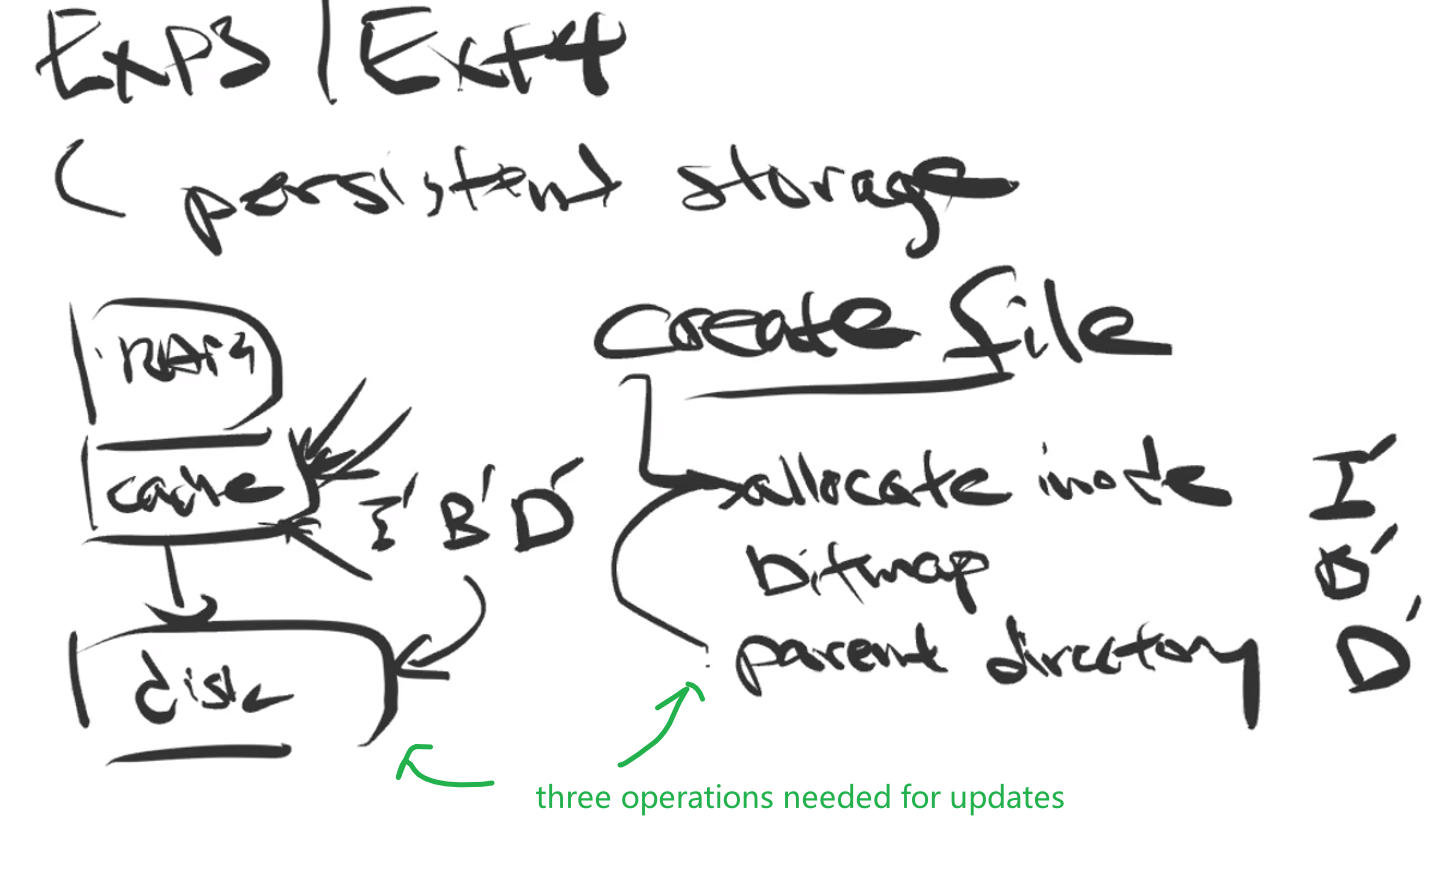 Exp3 | Ext4
persistent storage
create file
RAM
cache
I' B' D'
disk
allocate inode I'
bitmap B'
parent directory D'
three operations needed for updates